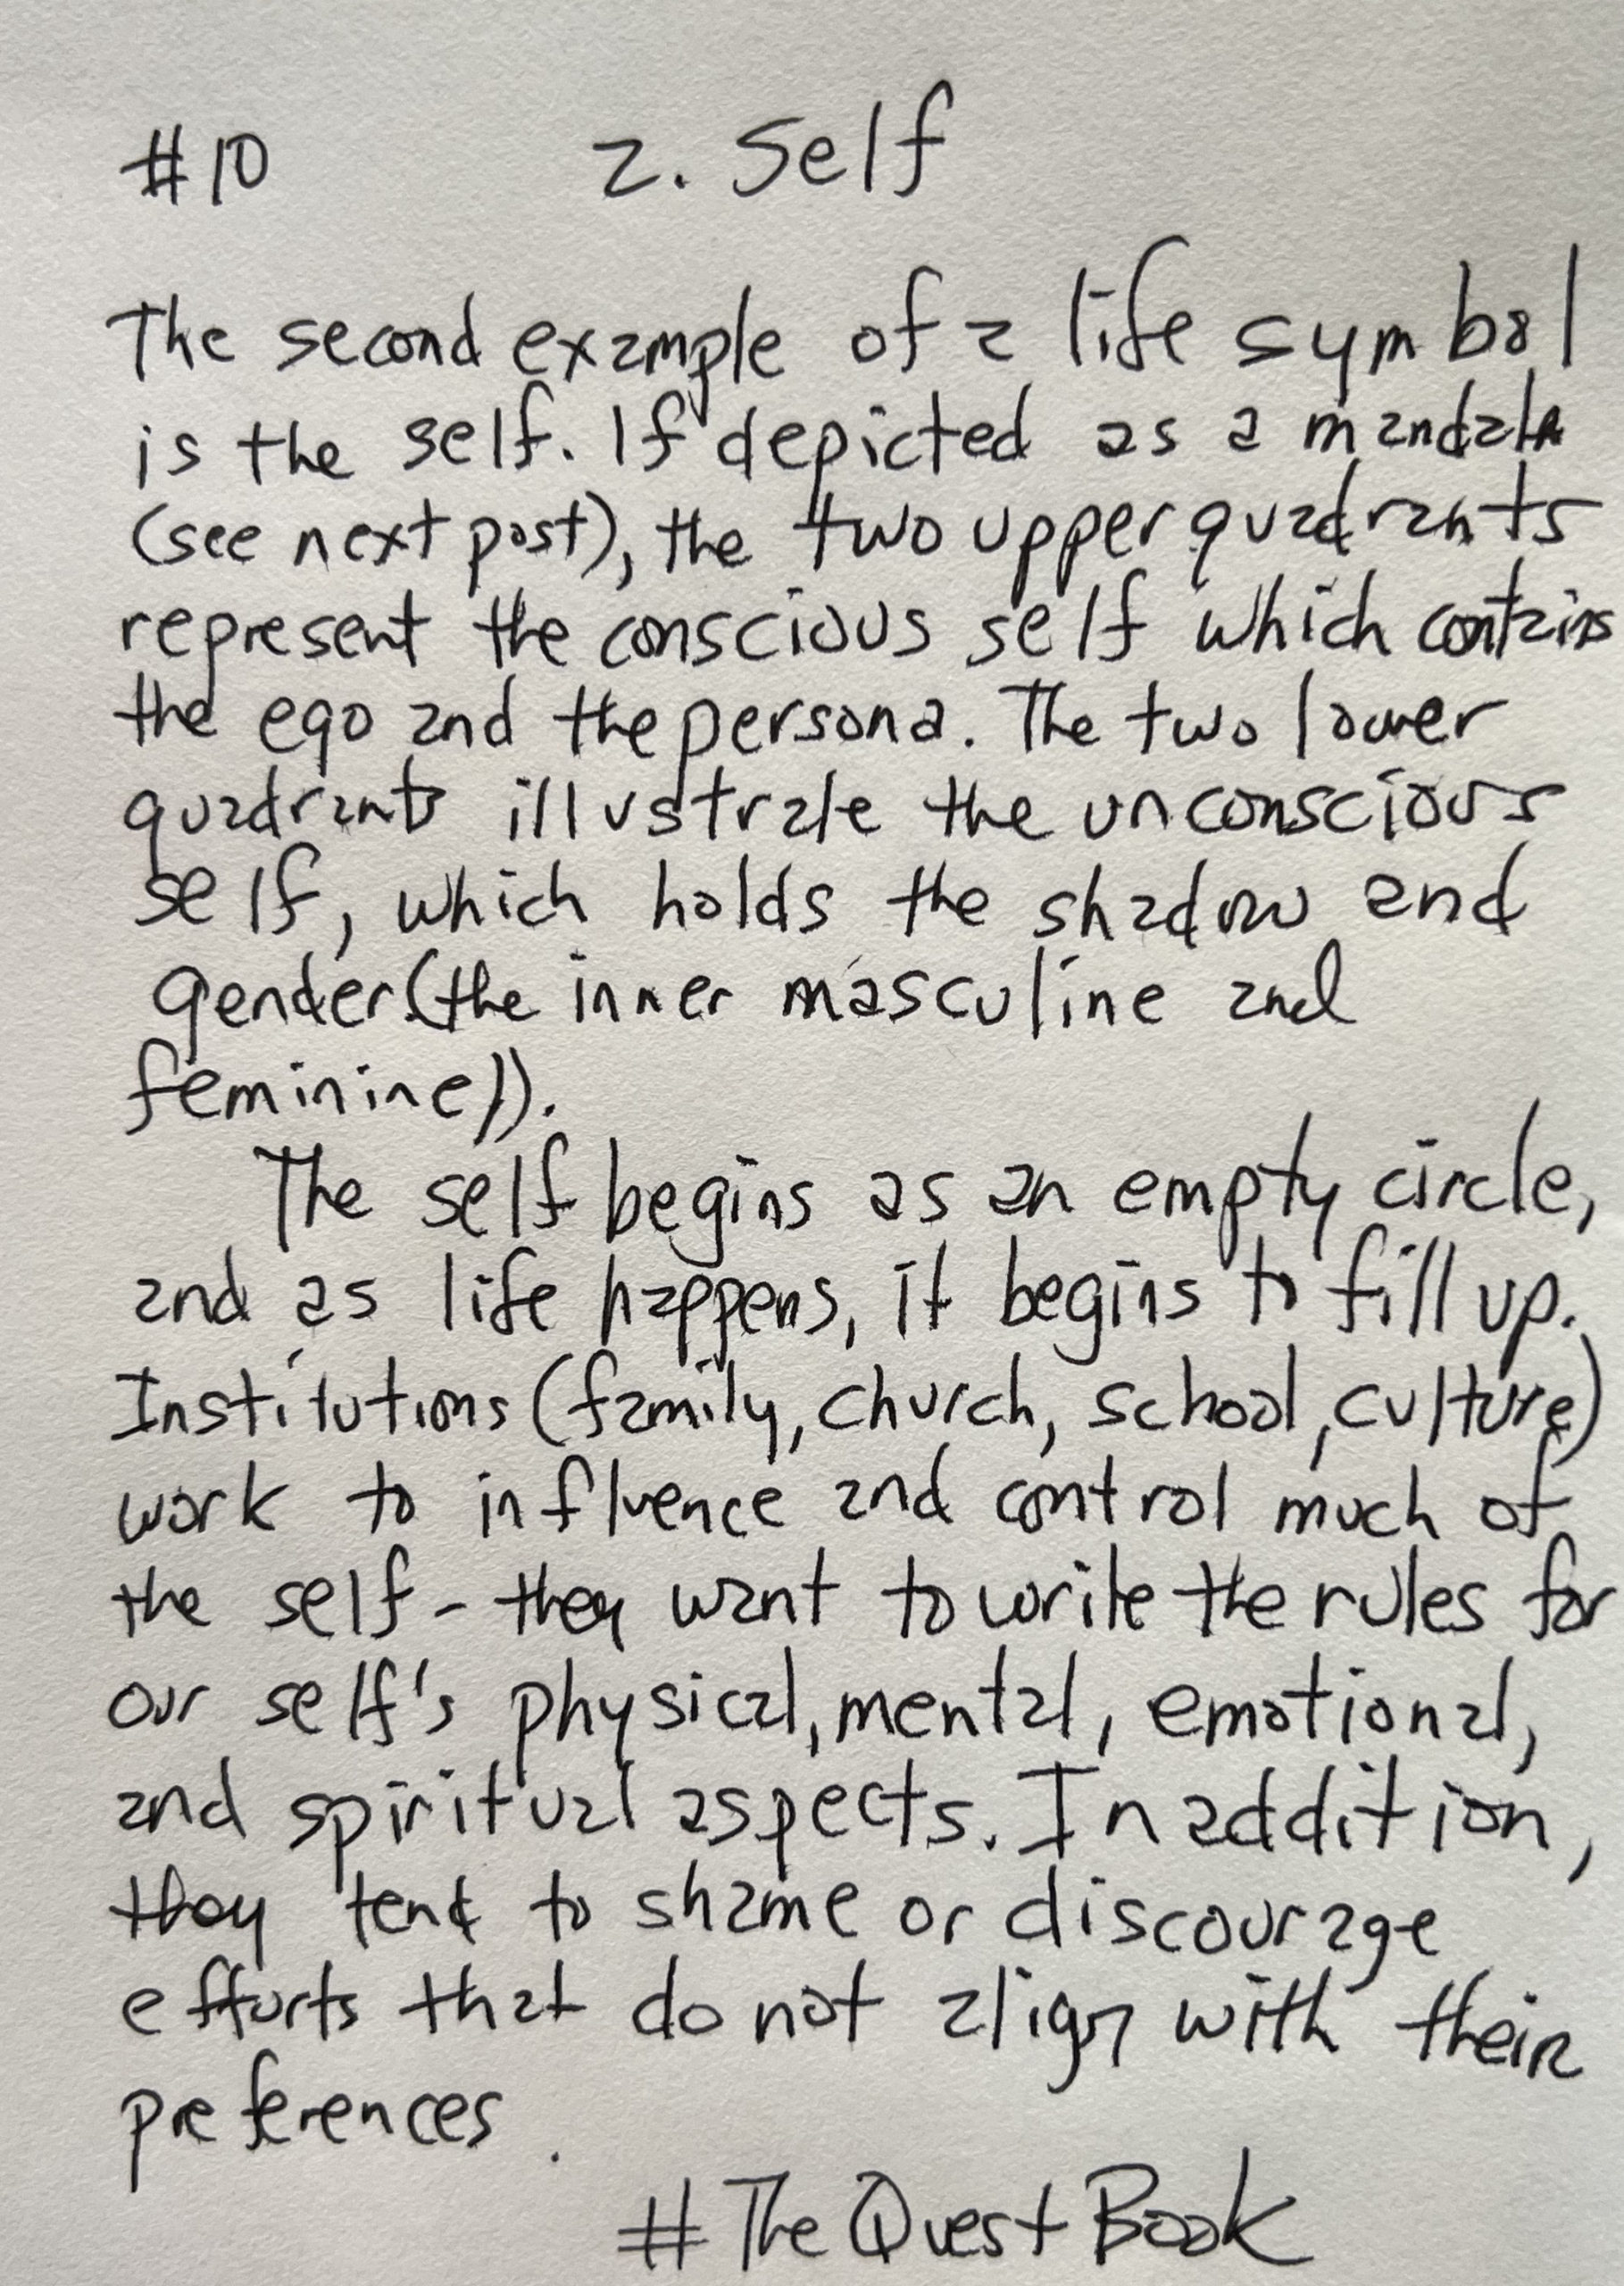 #10 2. Self
The second example of a life symbol
is the self. If depicted as a mandala
(see next post), the two upper quadrants
represent the conscious self which contains
the ego and the persona. The two lower
quadrants illustrate the unconscious
self, which holds the shadow and
gender (the inner masculine and
feminine)).
The self begins as an empty circle,
and as life happens, it begins to fill up.
Institutions (family, church, school, culture)
work to influence and control much of
the self - they want to write the rules for
our self's physical, mental, emotional,
and spiritual aspects. In addition,
they tend to shame or discourage
efforts that do not align with their
preferences.
#TheQuestBook